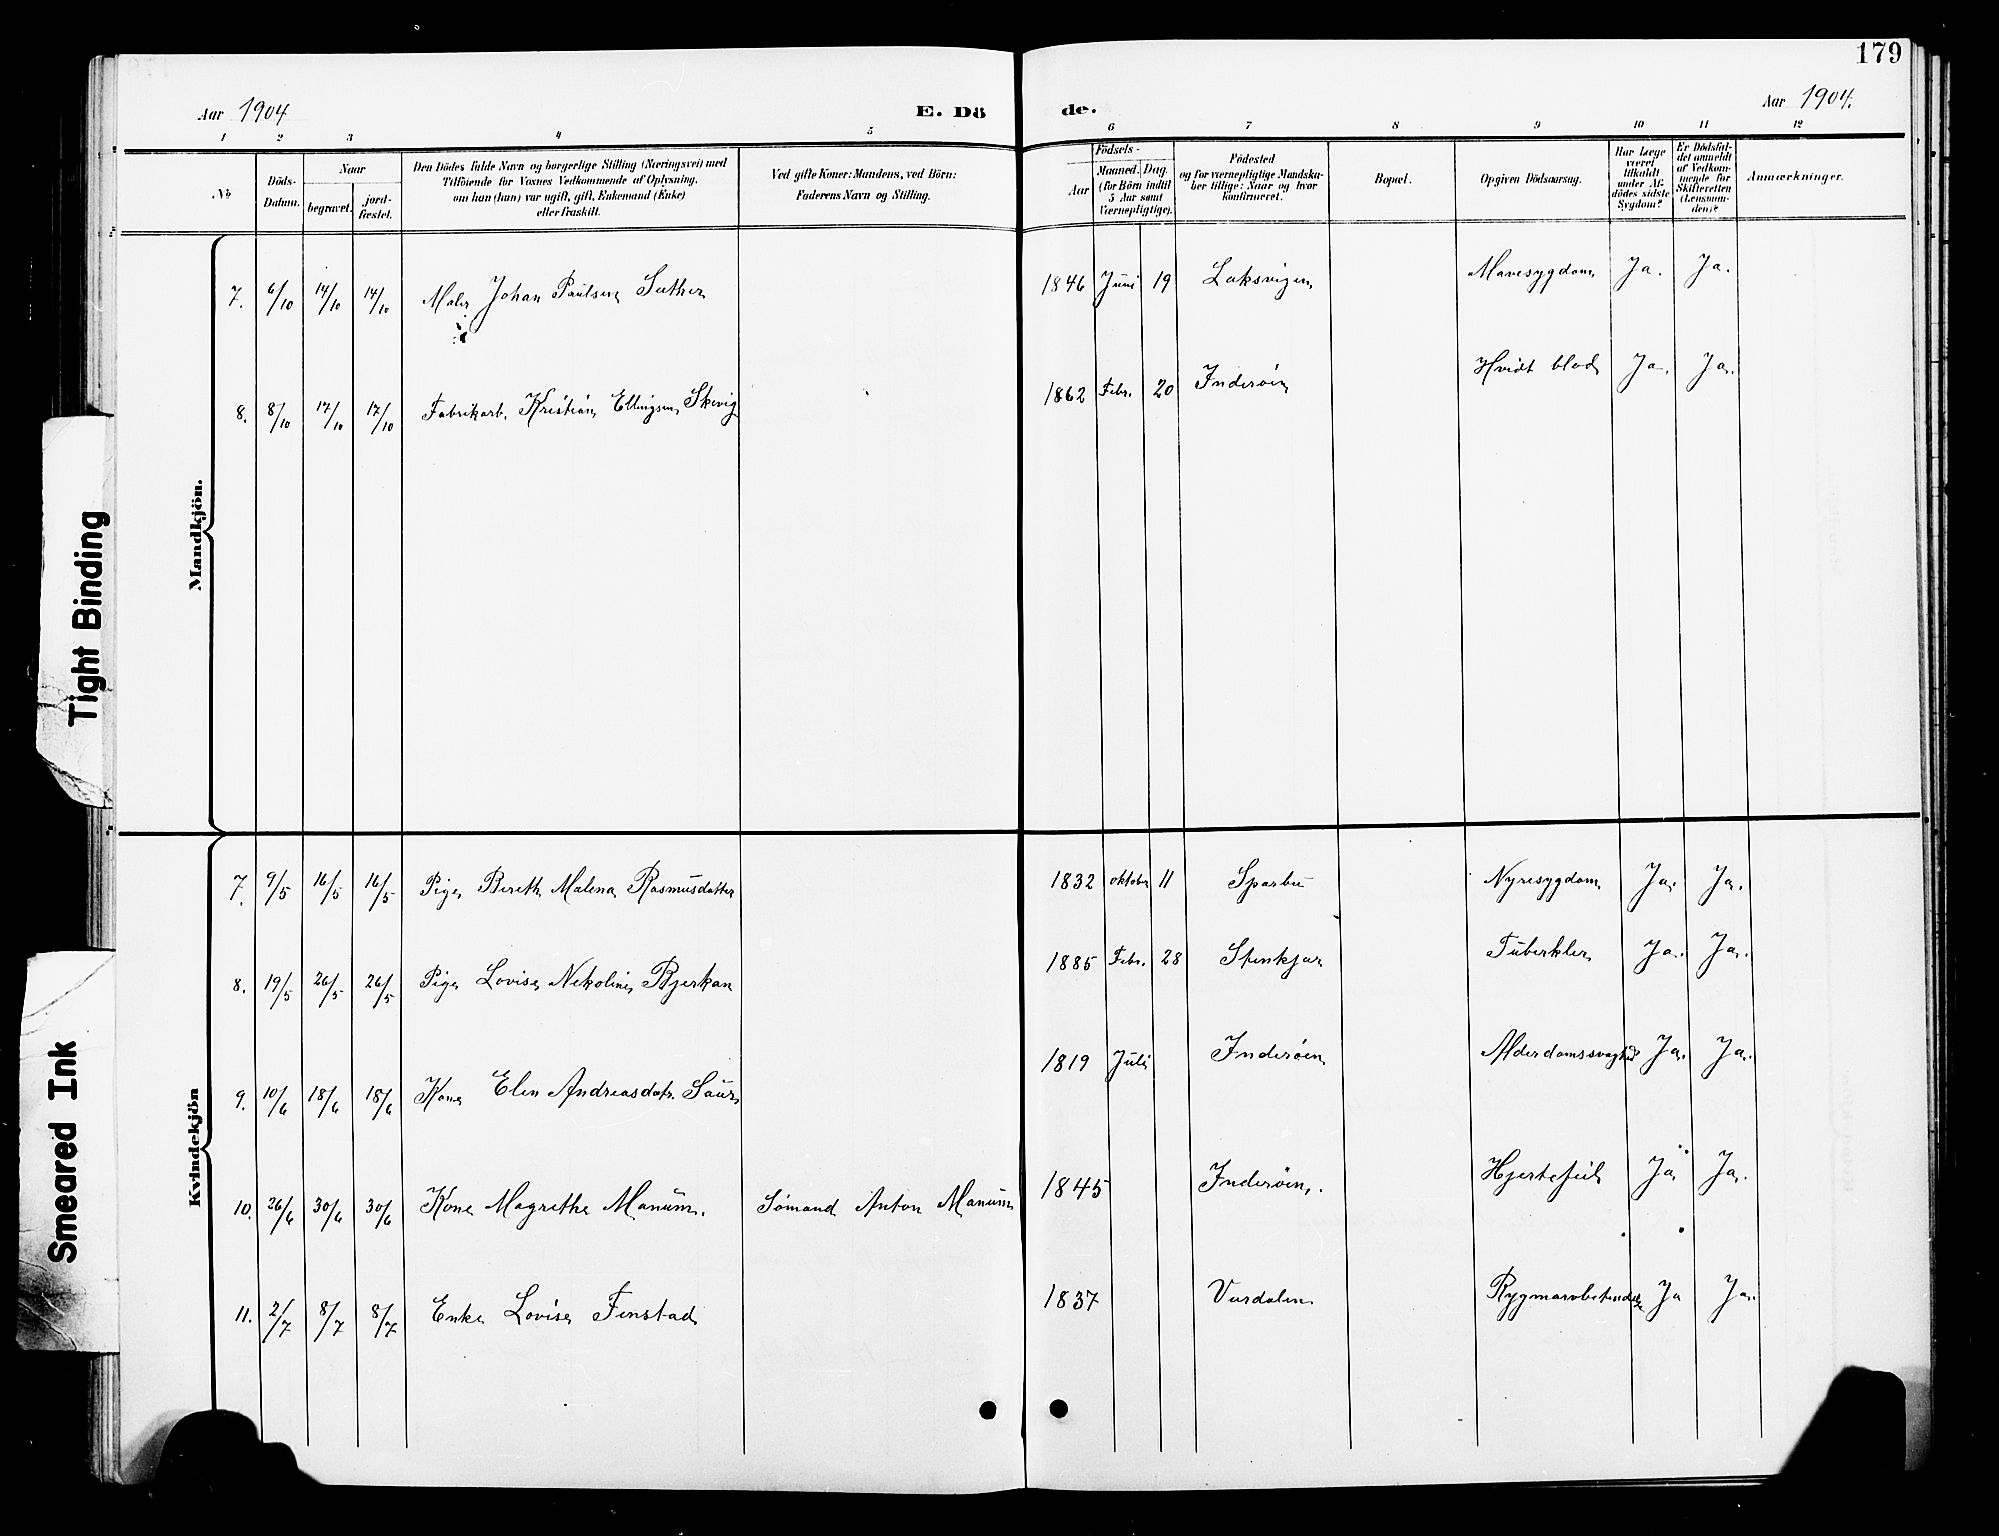 179
Aar 1904
E. Dö
de.
Aar 1904.
1 2 3 4 5 6 7 8 9 10 11 12
№
Döds-Datum.
Naar
begravet.
jord-fæstet.
Den Dödes fulde Navn og borgerlige Stilling (Næringsvei) med
Tilföiende for Voxnes Vedkommende af Oplysning,
om han (hun) var ugift, gift, Enkemand (Enke)
eller fraskilt.
Ved gifte Koner: Mandens, ved Börn:
Faderens Navn og Stilling.
Födsels-
Aar
Maaned. Dag.
(for Börn indtil
5 Aar samt
Værnepligtige).
Födested
og for værnepligtige Mandska-
ber tillige: Naar og hvor
konfirmeret.
Bopæl.
Opgiven Dödsaarsag.
Har Læge
været
tilkaldt
under Af-
dödes sidste
Sygdom?
Er Dödsfal-
det anmeldt
af Vedkom-
mende for
Skifteretten
(Lensman-
den)?
Anmærkninger.
Mandkjön.
7. 6/10 14/10 14/10 Maler Johan Paulsen Suther 1846 Juni 19 Laksvigen Mavesygdom Ja. Ja.
8. 8/10 17/10 17/10 Fabrikarb. Kristian Ellingsen Skevig 1862 Febr. 20 Inderøen Hvidt blod Ja. Ja.
Kvindekjön
7. 9/5 16/5 16/5 Pige Bereth Malena Rasmusdatter 1832 oktober 11 Sparbu Nyresygdom Ja. Ja.
8. 19/5 26/5 26/5 Pige Lovise Nikoline Bjerkan 1885 Febr. 28 Stenkjær Tuberkler Ja. Ja.
9. 10/6 18/6 18/6 Kone Elen Andreasdatr. Saur 1819 Juli Inderøen Alderdomssvaghed Ja. Ja.
10. 26/6 30/6 30/6 Kone Magrethe Manum. Sømand Anton Manum 1845 Inderøen. Hjertefeil Ja Ja.
11. 2/7 8/7 8/7 Enke Lovise Finstad 1837 Værdalen Rygmarvbetændelse Ja Ja.
Tight Binding
Smeared Ink